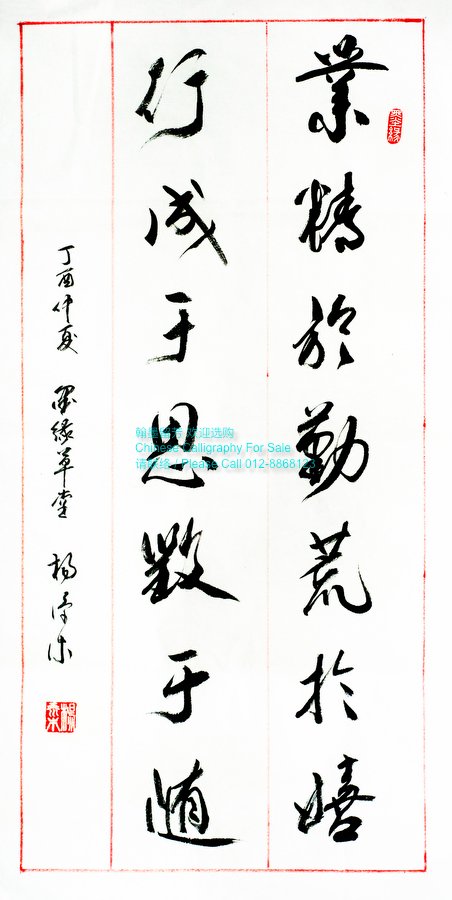 業精於勤荒於嬉
行成于思毀于隨
丁酉仲夏 墨緣草堂 楊
欢迎选购
Chinese Calligraphy For Sale
请联络 / Please Call